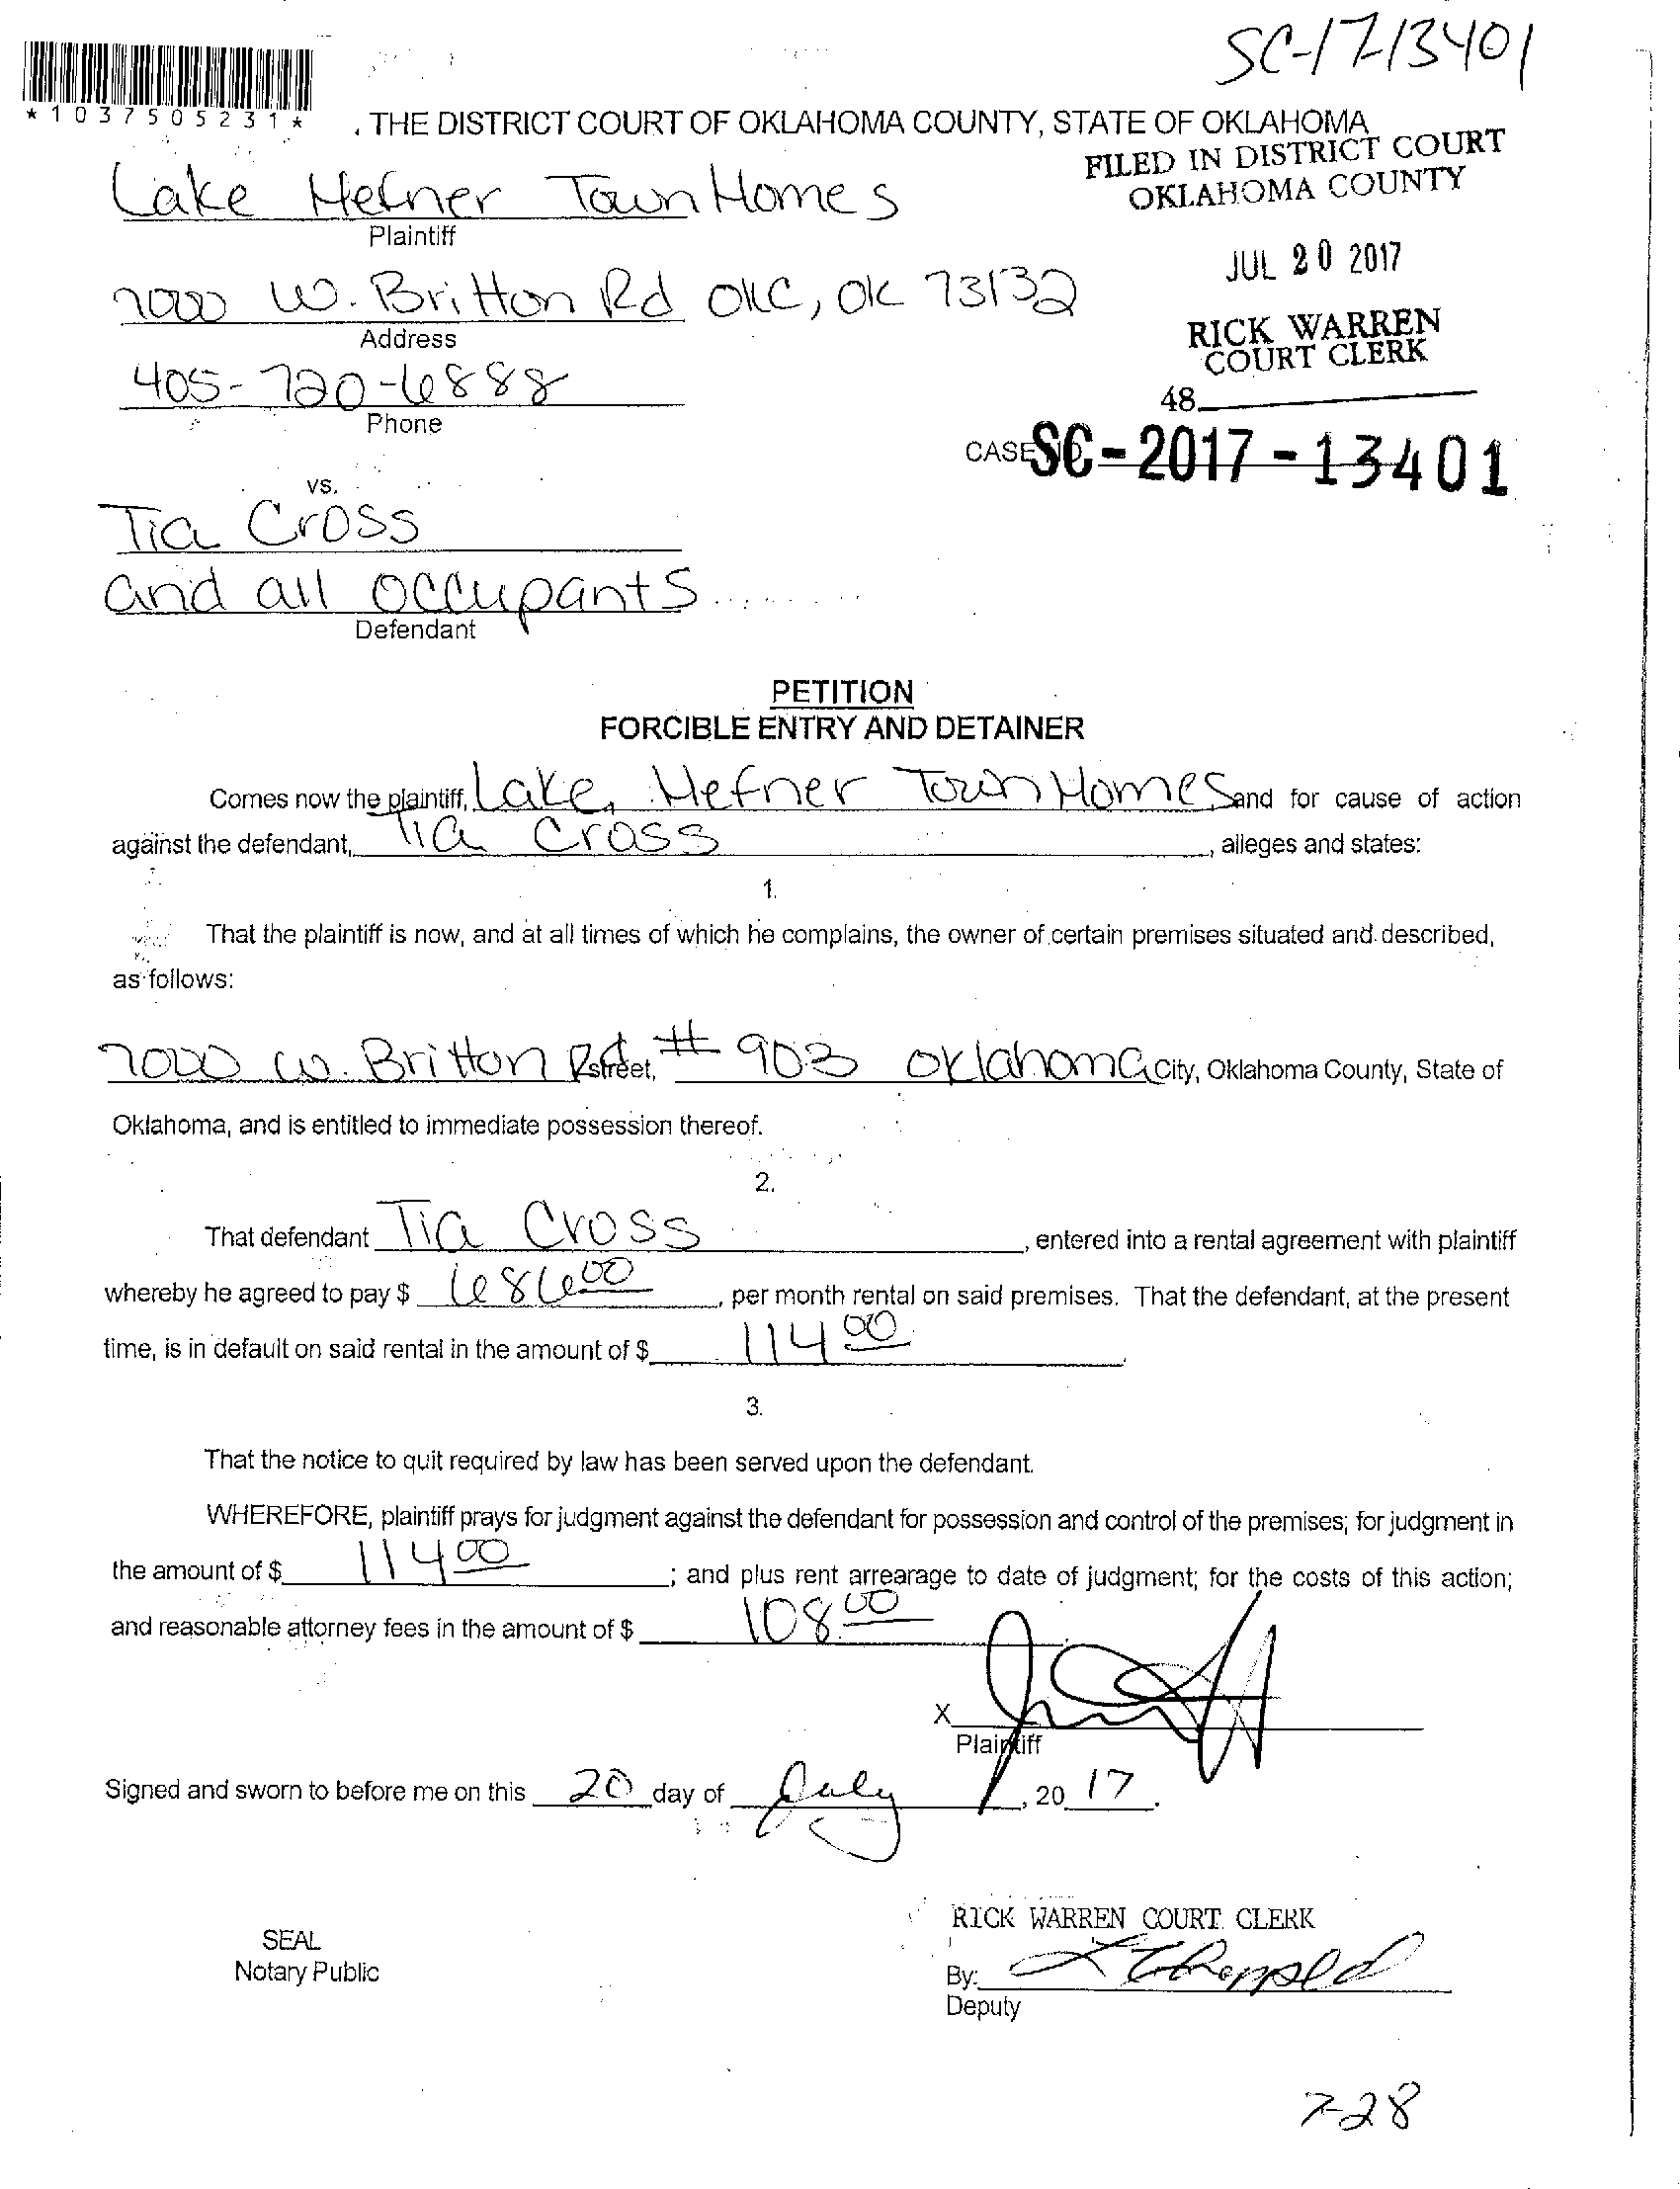 SC-17-13401
*1037505231*
. THE DISTRICT COURT OF OKLAHOMA COUNTY, STATE OF OKLAHOMA
FILED IN DISTRICT COURT
OKLAHOMA COUNTY
Lake Hefner Town Homes
Plaintiff
JUL 20 2017
7000 W. Britton Rd OKC, OK 73132
Address
RICK WARREN
COURT CLERK
405-720-6888
Phone
48
CASE NO. SC-2017-13401
vs.
Tia Cross
and all occupants
Defendant
PETITION
FORCIBLE ENTRY AND DETAINER
Comes now the plaintiff, Lake Hefner Town Homes and for cause of action
against the defendant, Tia Cross, alleges and states:
1.
That the plaintiff is now, and at all times of which he complains, the owner of certain premises situated and described,
as follows:
7000 W. Britton Rd street, # 903 Oklahoma City, Oklahoma County, State of
Oklahoma, and is entitled to immediate possession thereof.
2.
That defendant Tia Cross, entered into a rental agreement with plaintiff
whereby he agreed to pay $ 686 00, per month rental on said premises. That the defendant, at the present
time, is in default on said rental in the amount of $ 114 00
3.
That the notice to quit required by law has been served upon the defendant.
WHEREFORE, plaintiff prays for judgment against the defendant for possession and control of the premises; for judgment in
the amount of $ 114 00; and plus rent arrearage to date of judgment; for the costs of this action;
and reasonable attorney fees in the amount of $ 108.00
X
Plaintiff
Signed and sworn to before me on this 20 day of July, 20 17.
RICK WARREN COURT CLERK
SEAL
Notary Public
By:
Deputy
7-28